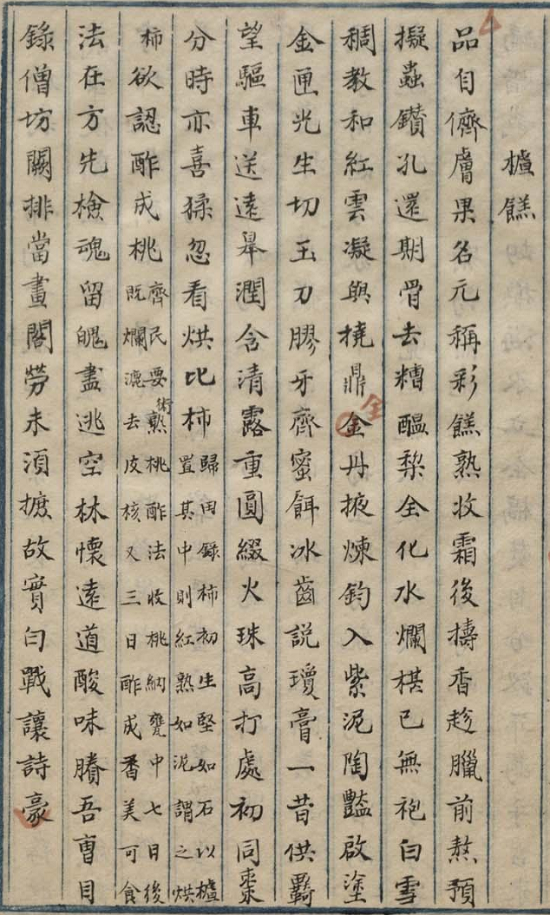 樝餻
品自儕膚果名元稱彩餻熟收霜後擣香趁臘前熬預
擬蟲鑽孔還期骨去糟醖棃全化水爛棋已無袍白雪
稠教和紅雲凝與撓鼎金丹掖煉鈞入紫泥陶豔啟塗
全
金匣光生切玉刀膠牙齊蜜餌冰齒説瓊膏一昔供覊
望驅車送遠皋潤含清露重圓綴火珠高打處初同棗
分時亦喜猱忽看烘比柿
歸田錄柿初生堅如石以樝
置其中則紅熟如泥謂之烘
柿
欲認酢成桃
齊民要術熟桃酢法收桃納甕中七日後
既爛漉去皮核又三日酢成香美可食
法在方先檢魂留魄盡逃空林懷遠道酸味賸吾曹目
錄僧坊闕排當畫閣勞未須摭故實白戰讓詩豪